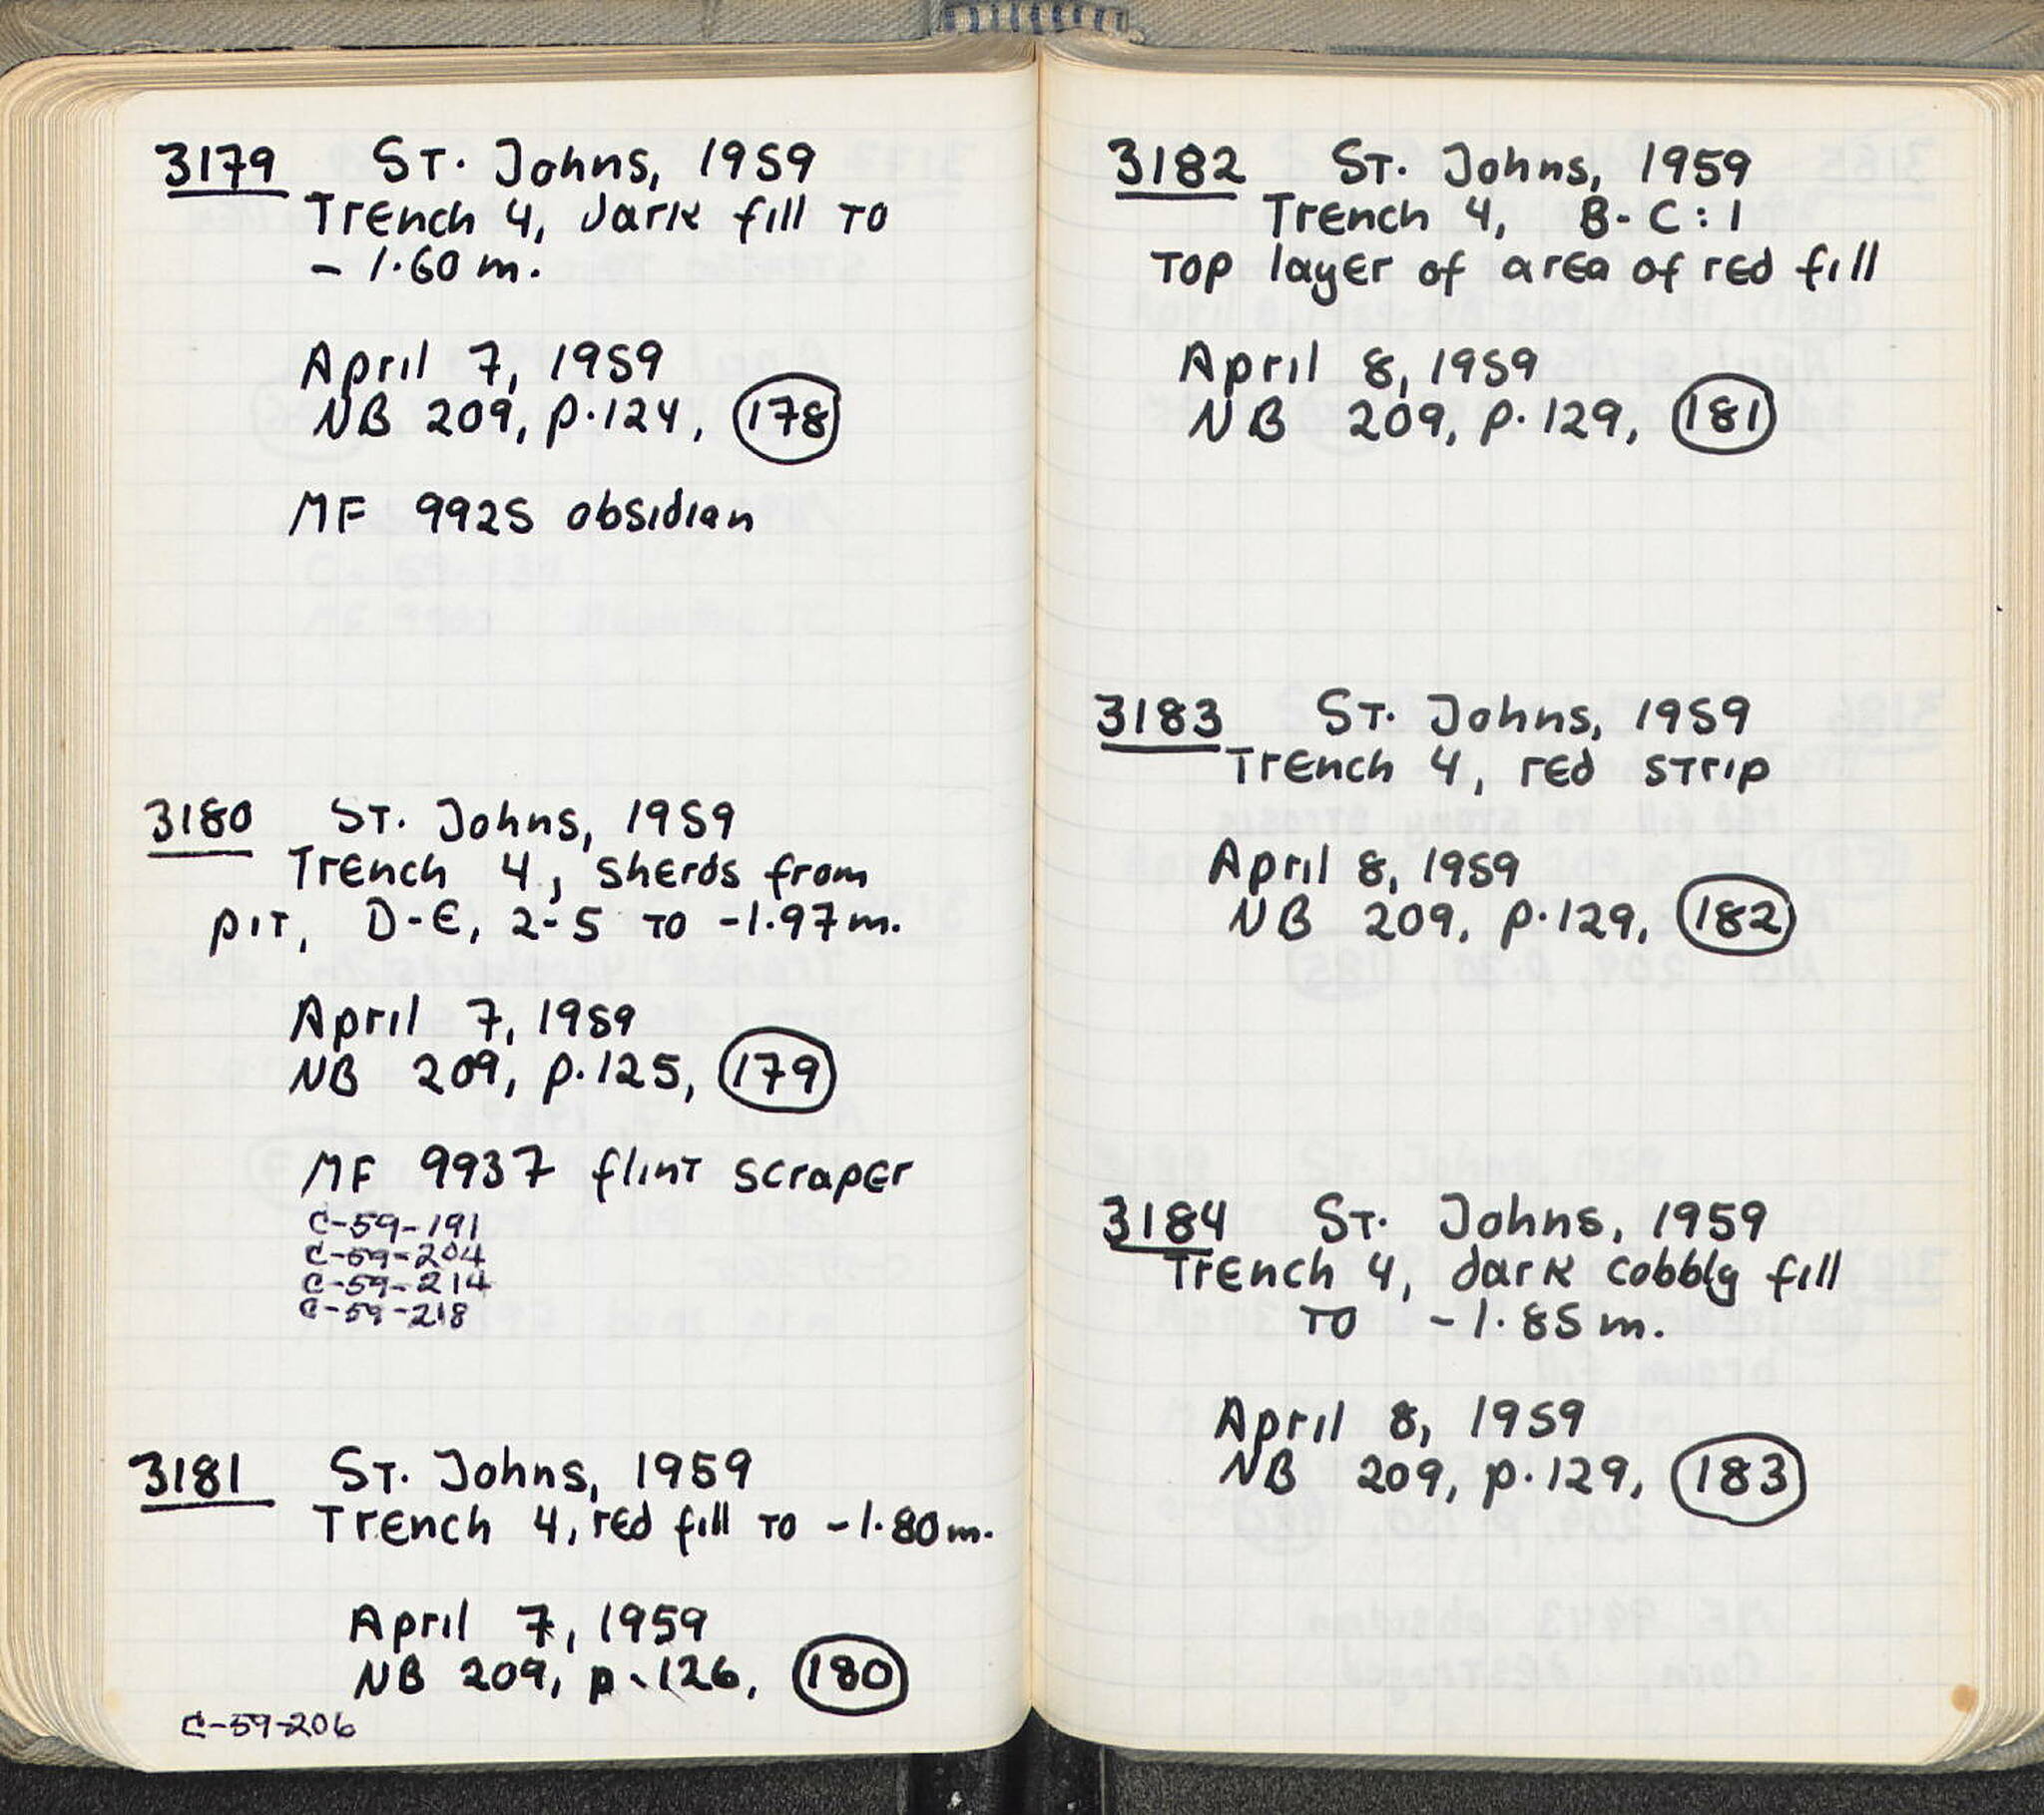 3179 St. Johns, 1959
Trench 4, dark fill to
- 1.60 m.
April 7, 1959
NB 209, p.124, 178
MF 9925 obsidian
3180 St. Johns, 1959
Trench 4, sherds from
pit, D-E, 2-5 to -1.97 m.
April 7, 1959
NB 209, p.125, 179
MF 9937 flint scraper
C-59-191
C-59-204
C-59-214
C-59-218
3181 St. Johns, 1959
Trench 4, red fill to -1.80 m.
April 7, 1959
NB 209, p.126, 180
C-59-206
3182 St. Johns, 1959
Trench 4, B-C:1
Top layer of area of red fill
April 8, 1959
NB 209, p.129, 181
3183 St. Johns, 1959
Trench 4, red strip
April 8, 1959
NB 209, p.129, 182
3184 St. Johns, 1959
Trench 4, dark cobbly fill
to -1.85 m.
April 8, 1959
NB 209, p.129, 183